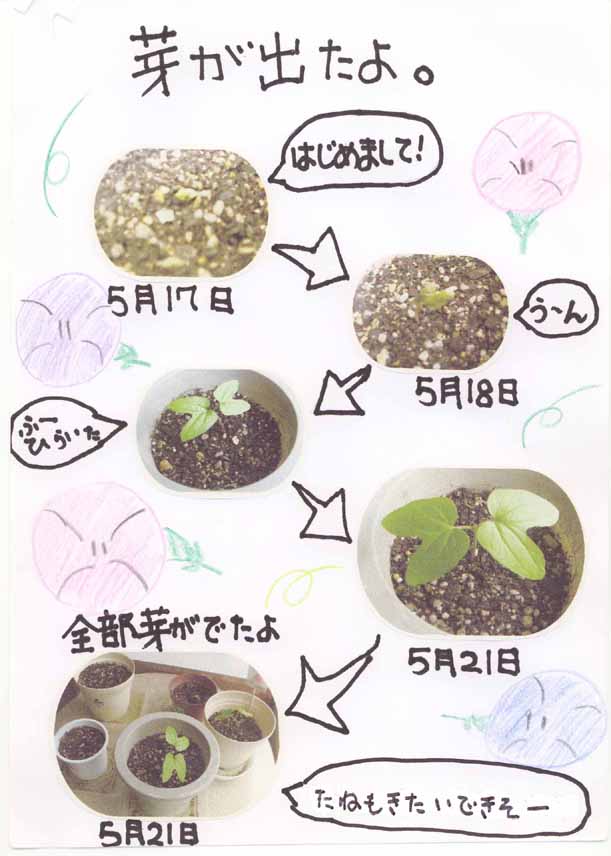 芽が出たよ。
はじめまして!
5月17日
う〜ん
5月18日
ふー
ひらいた
5月21日
全部芽がでたよ
5月21日
たねもきたいできそー